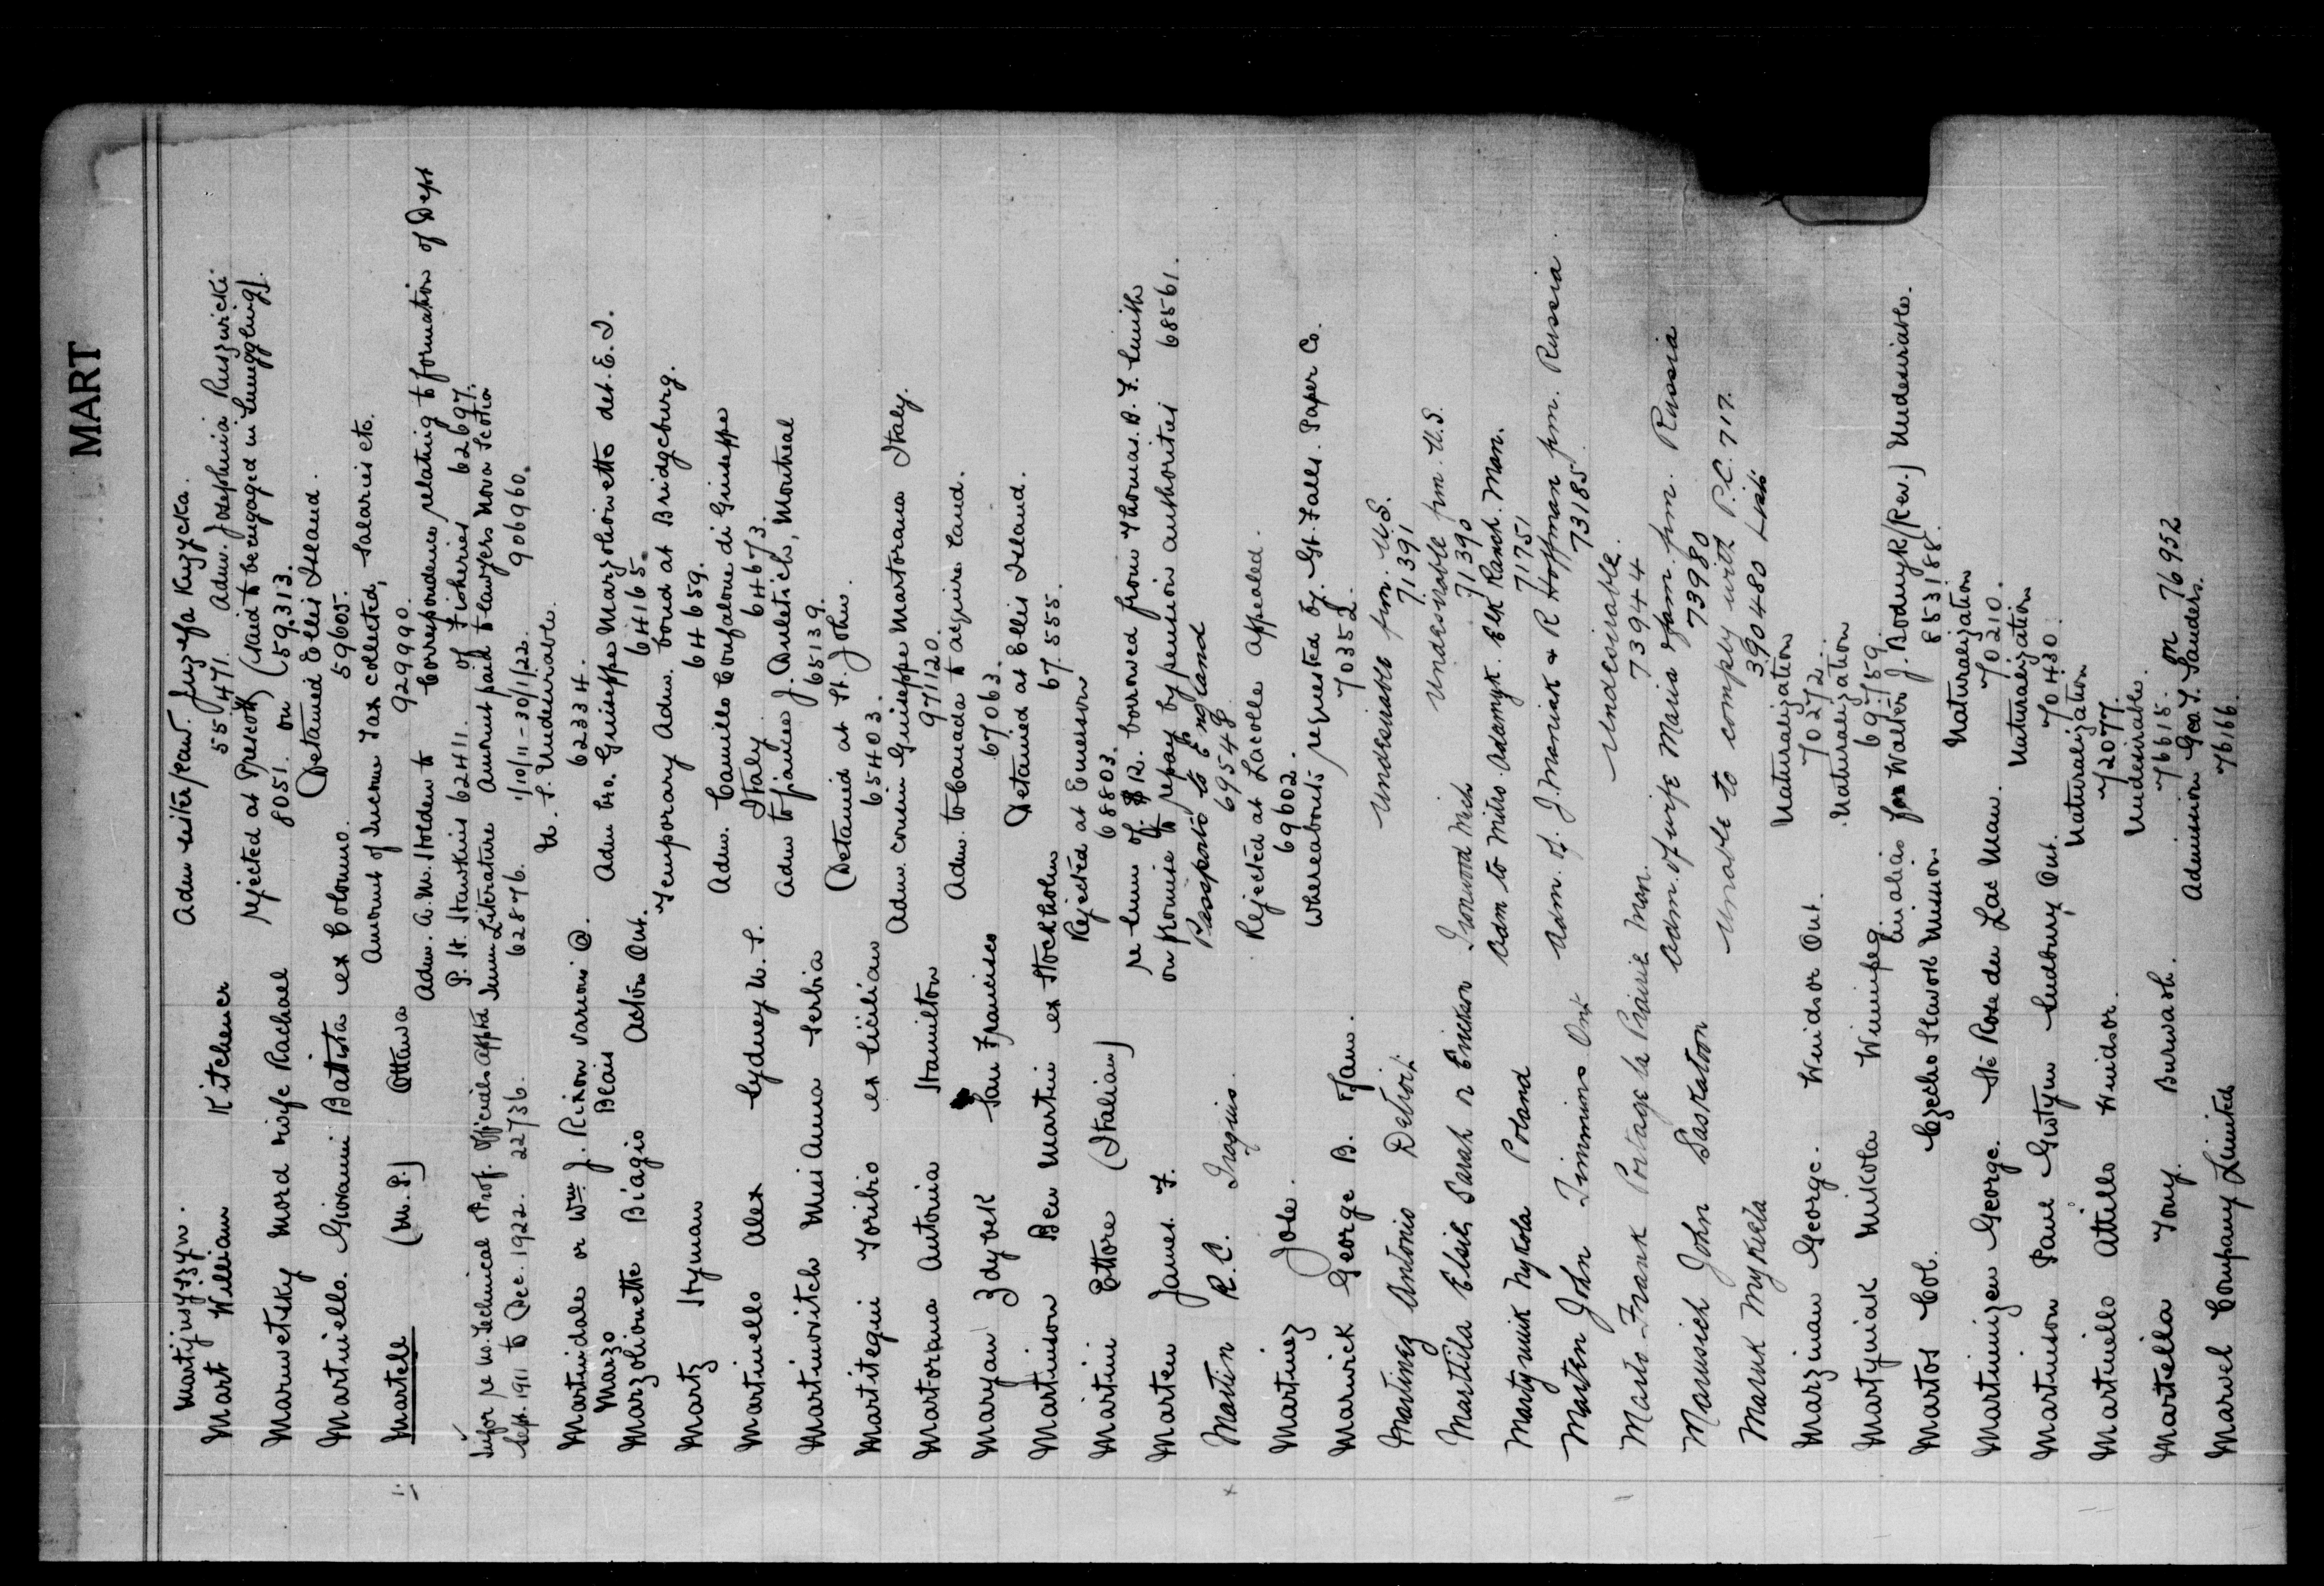 MART
Martijuszyn. Adm sister/cant. Juzefa Kuzycka.
Mart William Kitchener 55471. Adm. Josephinia Ruszwicki
Marwetsky Mord wife Rachael rejected at Prescott (said to be engaged in smuggling).
8051. on (59.313.
Martiniello. Giovanni Battista ex Colouno. Detained Ellis Island.
59605.
Martell (M.P.) Ottawa Amount of Income Tax collected, Salaries etc.
929990.
Adm. A. M. Holden to Correspondence relating to formation of Dept
P. H. Hawkins 62411. of Fisheries 62697.
Infor re no. Technical Prof. Officials apptd Imm Literature Amount paid to lawyers Nova Scotia
Sept. 1911 to Dec. 1922. 22736. 62876. 1/10/11-30/1/22. 906960.
Martindale or Wm. J. Rixon Varrioni @. U.S. Undesirable.
Marzo Blais 62334.
Marzolionette Biagio Acton Ont. Adm bro. Guiseppe Marzoliowetto det. E. I.
64165.
Martz Hyman Temporary Adm. bond at Bridgeburg.
64659.
Martiniello Alex Sydney N.S. Adm. Camillo Confalone di Guiseppe
Italy. 64673.
Martinovitch Miss Anna Serbia Adm to fiancee J. Duletich, Montreal
65139.
Martitegui Toribio ex Sicilian Detained at St. John.
65403.
Martorana Antonia Hamilton Adm. cousin Guiseppe Martorana Italy.
971120.
Maryan Zdybek San Francisco Adm. to Canada to acquire land.
67063.
Martinson Ben Martin ex Stockholm Detained at Ellis Island.
67.555.
Martini Ettore (Italian) Rejected at Emerson
68803.
Marten James F. re sum of $12. borrowed from Thomas. B. F. Smith
on promise to repay by pension authorities 68561.
Martin R.C. Iraquis. Passports to England
69548
Martinez Jole. Rejected at Lacolle Appealed.
69602.
Marwick George B. Fam. Whereabouts requested by. Gt. Falls. Paper Co.
70352.
Martinez Antonio Detroit Undesirable from. U.S.
71391
Marttila Elsie Sarah n Erickson Ironwood Mich Undesirable fm. U.S.
71390
Martyniuk Nykola Poland Adm to Mitro Adamyk. Elk Ranch. Man.
71751
Marten John Timmins Ont Adm. of. J. Marciak & R Hoffman fm. Russia.
73185
Marts-Frank Portage la Prairie Man. Undesirable.
73944
Marusich John Saskatoon Adm. of wife Maria & fam. fm. Russia
73980
Maruk Mykieta Unable to comply with P.C. 717.
390480 Lists
Marzinan George. Windsor Ont. Naturalization
70272.
Martyniak Mikola Winnipeg. Naturalization
69759.
Martos Col. Czecho Slavak Mission Enialias for Walter J. Bodnyk/(Rev.) Undesirable.
853188.
Martinnizen George. Ste Rose du Lac Man. Naturalization
70210.
Martinson Paul Gustyn Sudbury Ont. Naturalization
70430.
Martiniello Attillo Windsor. Naturalization
72077.
Martella Tony. Burwash. Undesirable.
76615. on 76952
Marvel Company Limited Admission Geo. T. Sanders.
76166.